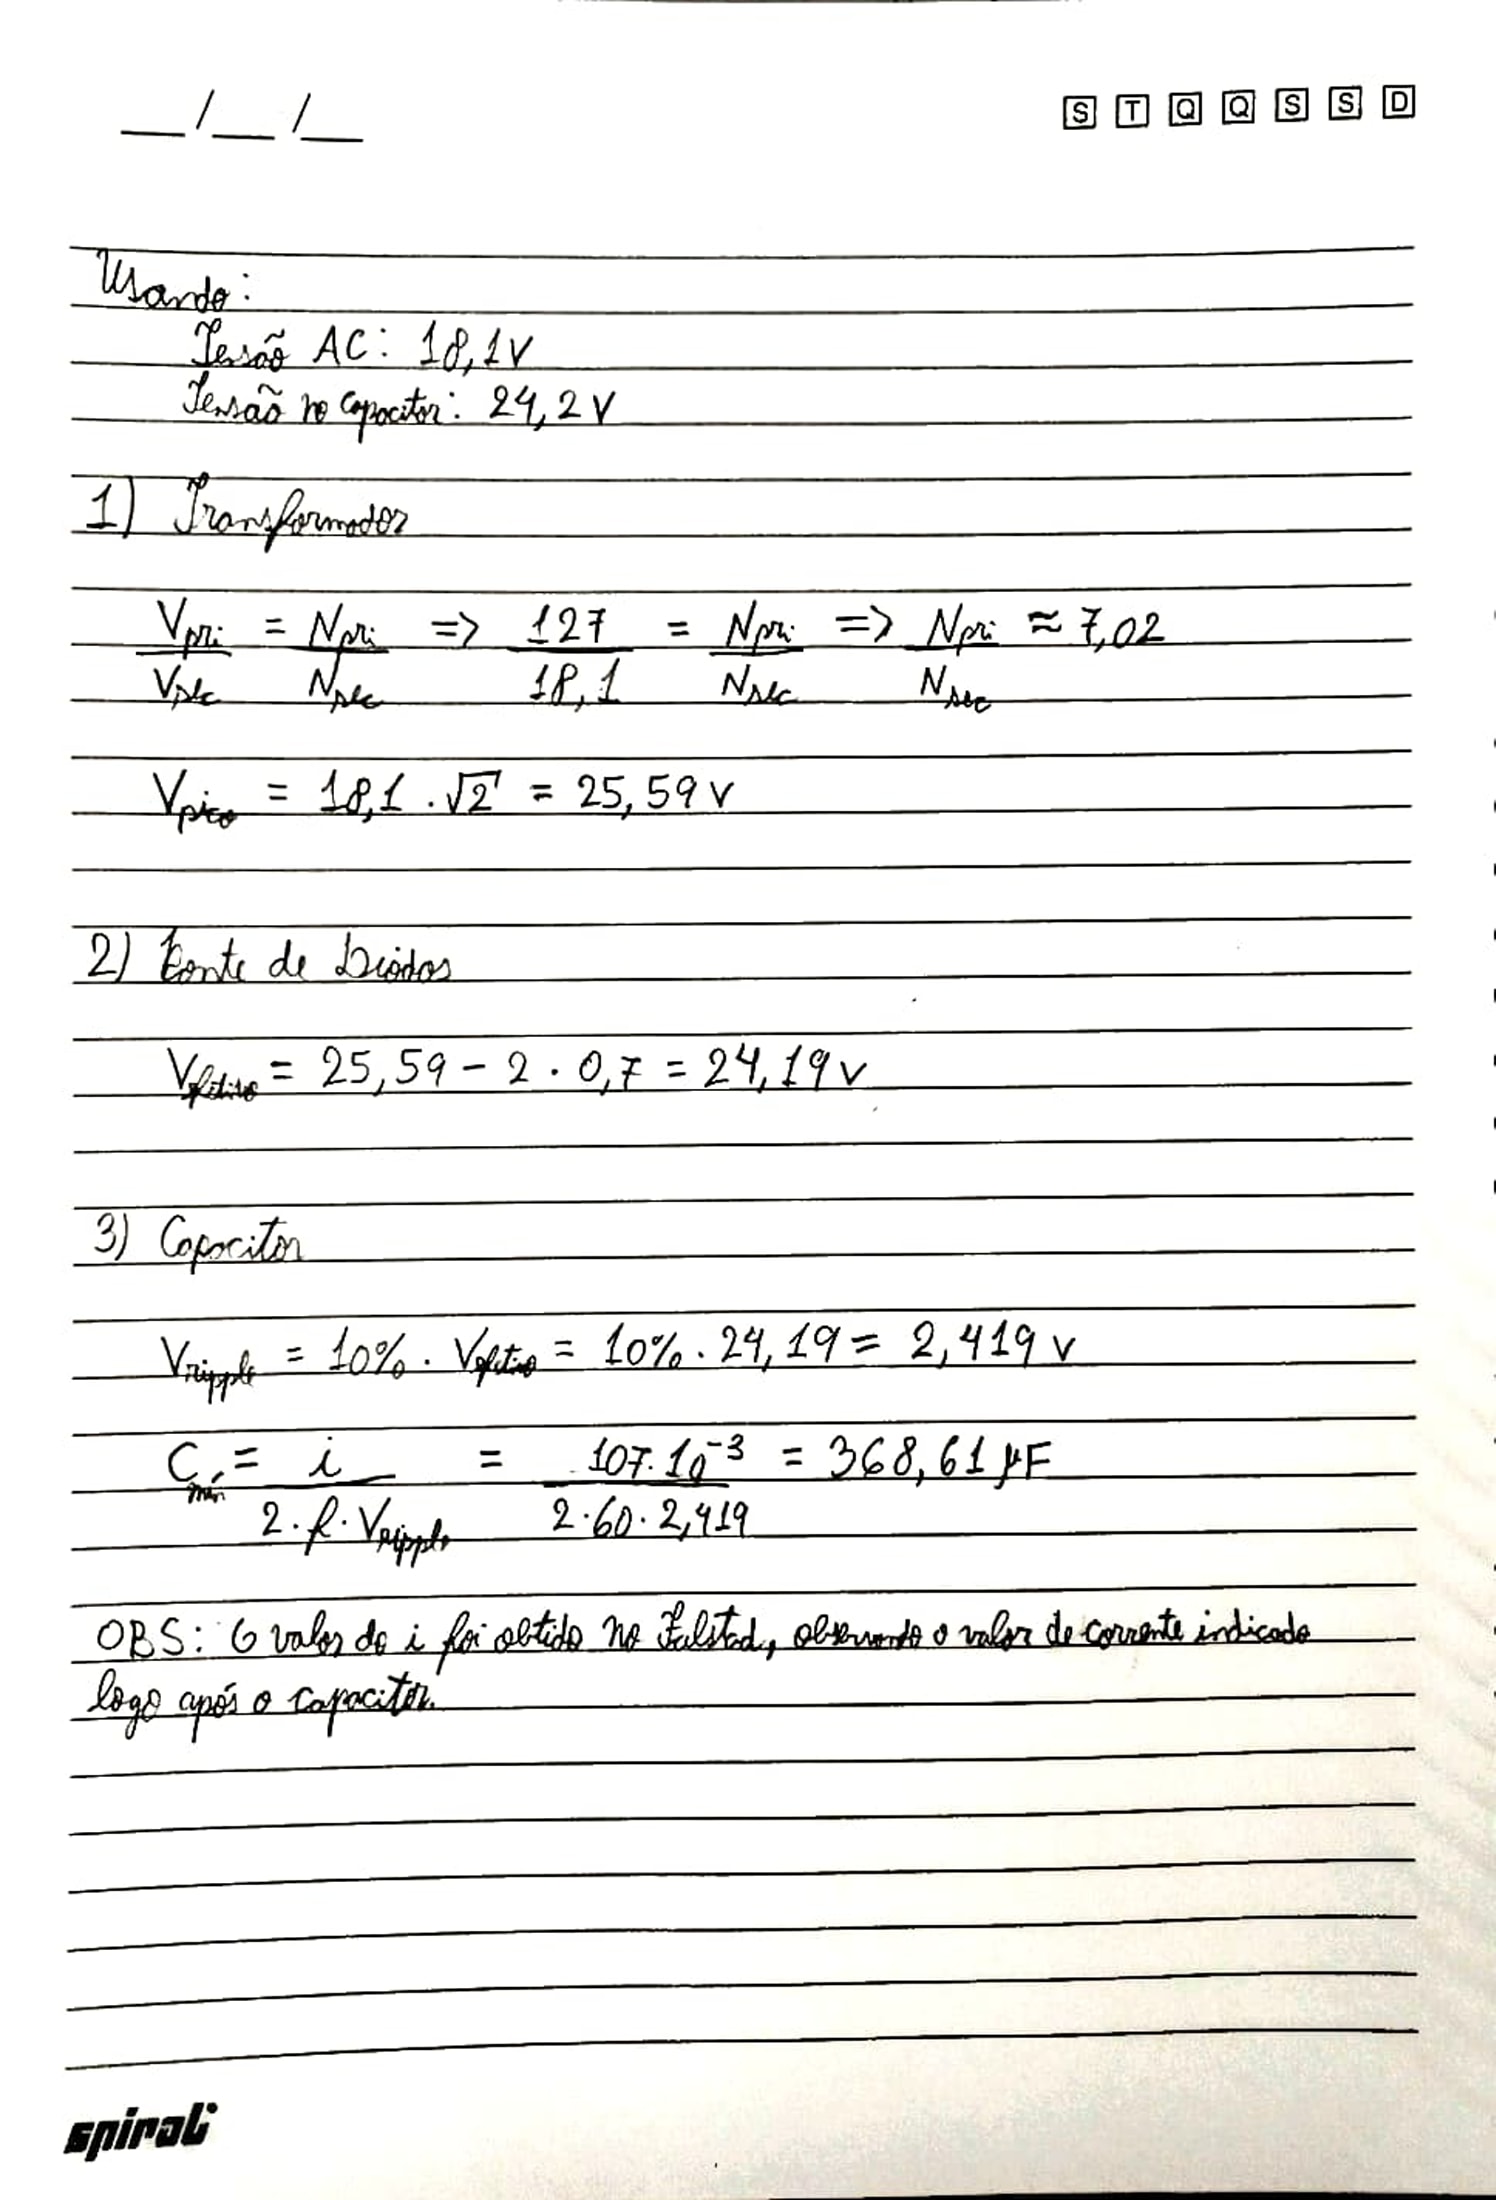 __/__/__ S T Q Q S S D
Usando:
Tensão AC: 18,1V
Tensão no capacitor: 24,2 V
1) Transformador
Vpri/Vsec = Npri/Nsec => 127/18,1 = Npri/Nsec => Npri/Nsec ≈ 7,02
Vpico = 18,1 . √2 = 25,59 V
2) Ponte de Diodos
Vefetivo = 25,59 - 2 . 0,7 = 24,19 V
3) Capacitor
Vripple = 10% . Vefetivo = 10% . 24,19 = 2,419 V
Cmín = i/(2.f.Vripple) = 107.10⁻³/(2.60.2,419) = 368,61 μF
OBS: O valor do i foi obtido no Falstad, observando o valor de corrente indicado
logo após o capacitor.
spiral